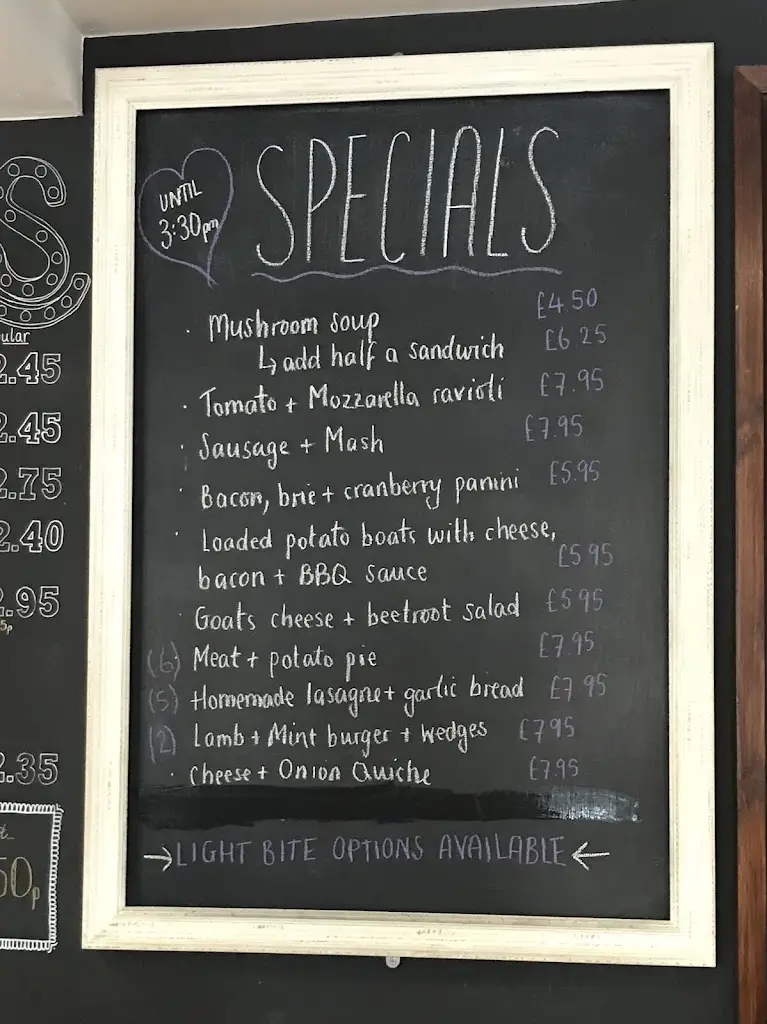 UNTIL
3:30pm
SPECIALS
· Mushroom soup £4.50
↳ add half a sandwich £6.25
· Tomato + Mozzarella ravioli £7.95
· Sausage + Mash £7.95
· Bacon, brie + cranberry panini £5.95
· Loaded potato boats with cheese,
bacon + BBQ sauce £5.95
Goats cheese + beetroot salad £5.95
(6) Meat + potato pie £7.95
(5) Homemade lasagne + garlic bread £7.95
(2) Lamb + Mint burger + wedges £7.95
· Cheese + Onion Quiche £7.95
→ LIGHT BITE OPTIONS AVAILABLE ←
S
ular
2.45
2.45
2.75
2.40
2.95
5p
2.35
50p